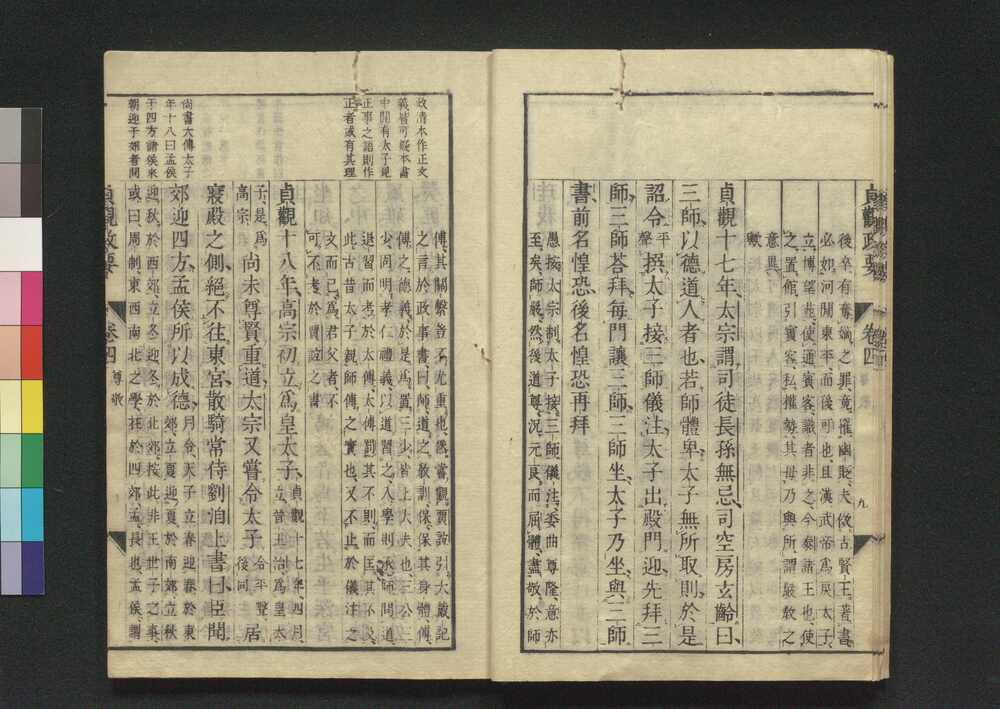 貞觀政要　卷四　九
後卒有奪嫡之罪竟摧幽貶夫倣古賢王著書
必如河間東平而後可也且漢武帝爲戾太子
立博望苑使通賓客識者非之今泰諸王也使
之置館引賓客私權勢其毋乃與所謂嚴教之
意異
歟
貞觀十七年太宗謂司徒長孫無忌司空房玄齡曰
三師以德道人者也若師體卑太子無所取則於是
詔令平聲撰太子接三師儀注太子出殿門迎先拜三
師三師荅拜每門讓三師三師坐太子乃坐與三師
書前名惶恐後名惶恐再拜
愚按太宗制太子接三師儀注委曲尊隆意亦
至矣師嚴然後道尊況元良而屈體盡敬於師
政清木作正文
義皆可疑本書
中間有太子見
正事之語則作
正者或有其理
傅其關繫豈不尤重也然嘗觀賈誼引大戴記
之言於政事書曰師道之敎訓保保其身體傅
傅之德義於是爲置三少皆上大夫也三公三
少固明孝仁禮義以道習之入學則承師問道
退習而考於太傅太傅罰其不則而匡其不及
此古昔太子親師傅之實也又不止於儀注之
文而已爲君父者不
可不考於賈誼之書
貞觀十八年高宗初立爲皇太子貞觀十七年四月
立晉王治爲皇太
子是爲
高宗尚未尊賢重道太宗又嘗令太子令平聲
後同居
寢殿之側絕不往東宮散騎常侍劉洎上書曰臣聞
郊迎四方孟侯所以成德月令天子立春迎春於東
郊立夏迎夏於南郊立秋
迎秋於西郊立冬迎冬於北郊按此非王世子之事
或曰周制東西南北之學在於四郊孟長也孟侯謂
尚書大傳太子
年十八曰孟侯
于四方諸侯來
朝迎于郊者問
貞觀政要　卷四　尊敬